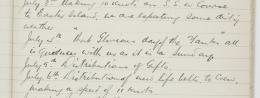 July 3rd Making 10 knots on S.E. Course
to Easter Island, we are repeating some dirty
weather
July 4th "That Glorious day of the Yanks" all
is quietness with us as it is a Sunday
July 5th Distributions of Gifts.
July 6th Distribution of new life belts to Crew,
making a speed of 11 knots.